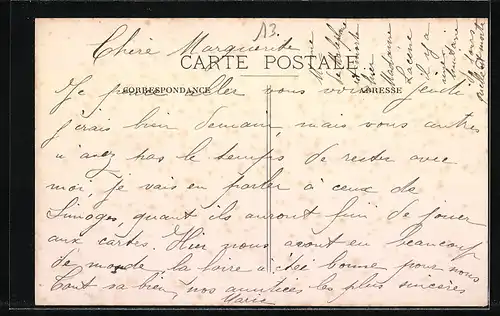 13
Chère Marguerite
CARTE POSTALE
CORRESPONDANCE
ADRESSE
Je pense aller vous voir jeudi
j'irais bien demain, mais vous autres
n'avez pas le temps de rester avec
moi, je vais en parler à ceux de
Limoges, quant ils auront fini de jouer
aux cartes. Hier nous avont eu beaucoup
de monde, la foire a été bonne pour nous
Tout va bien, nos amitiées les plus sincères
Marie
est morte
hier
Madame
Racine
il y a
une